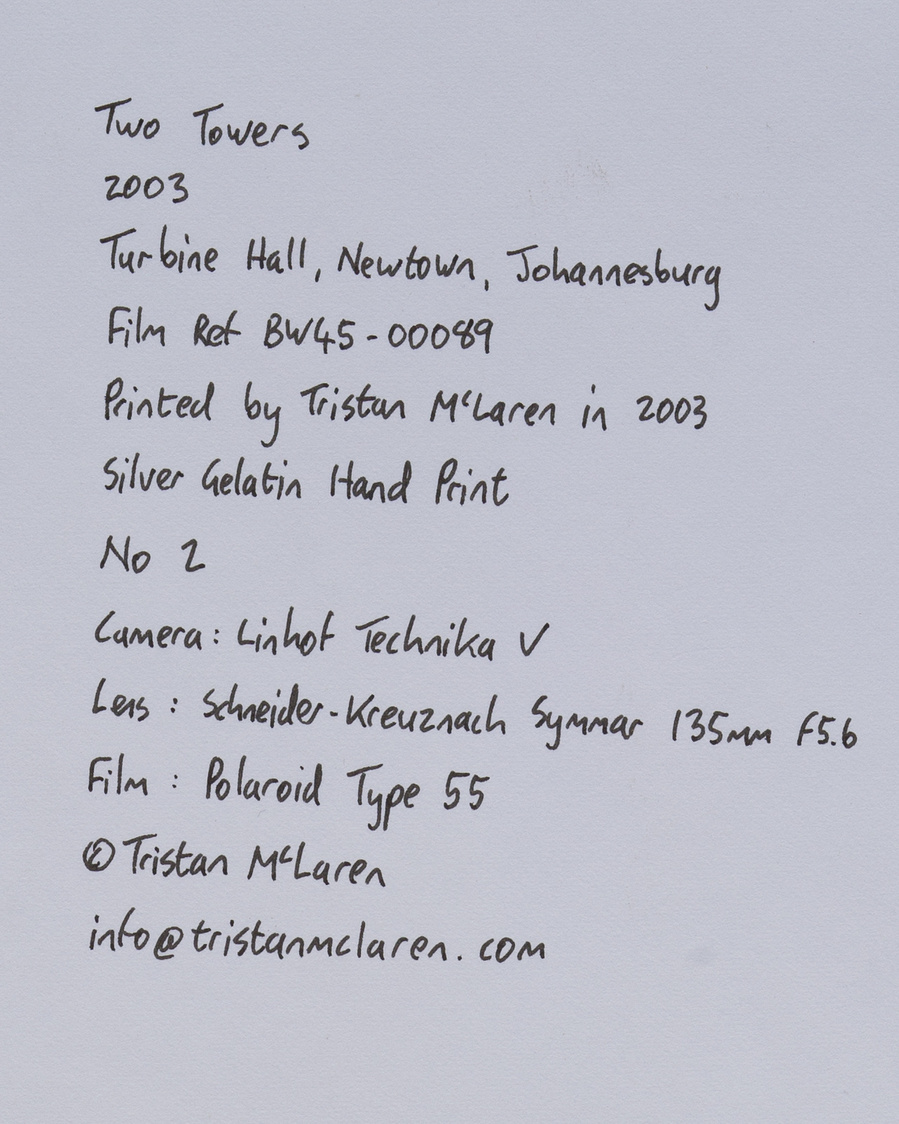 Two Towers
2003
Turbine Hall, Newtown, Johannesburg
Film Ref BW45-00089
Printed by Tristan McLaren in 2003
Silver Gelatin Hand Print
No 2
Camera: Linhof Technika V
Lens : Schneider-Kreuznach Symmar 135mm F5.6
Film : Polaroid Type 55
© Tristan McLaren
info@tristanmclaren.com